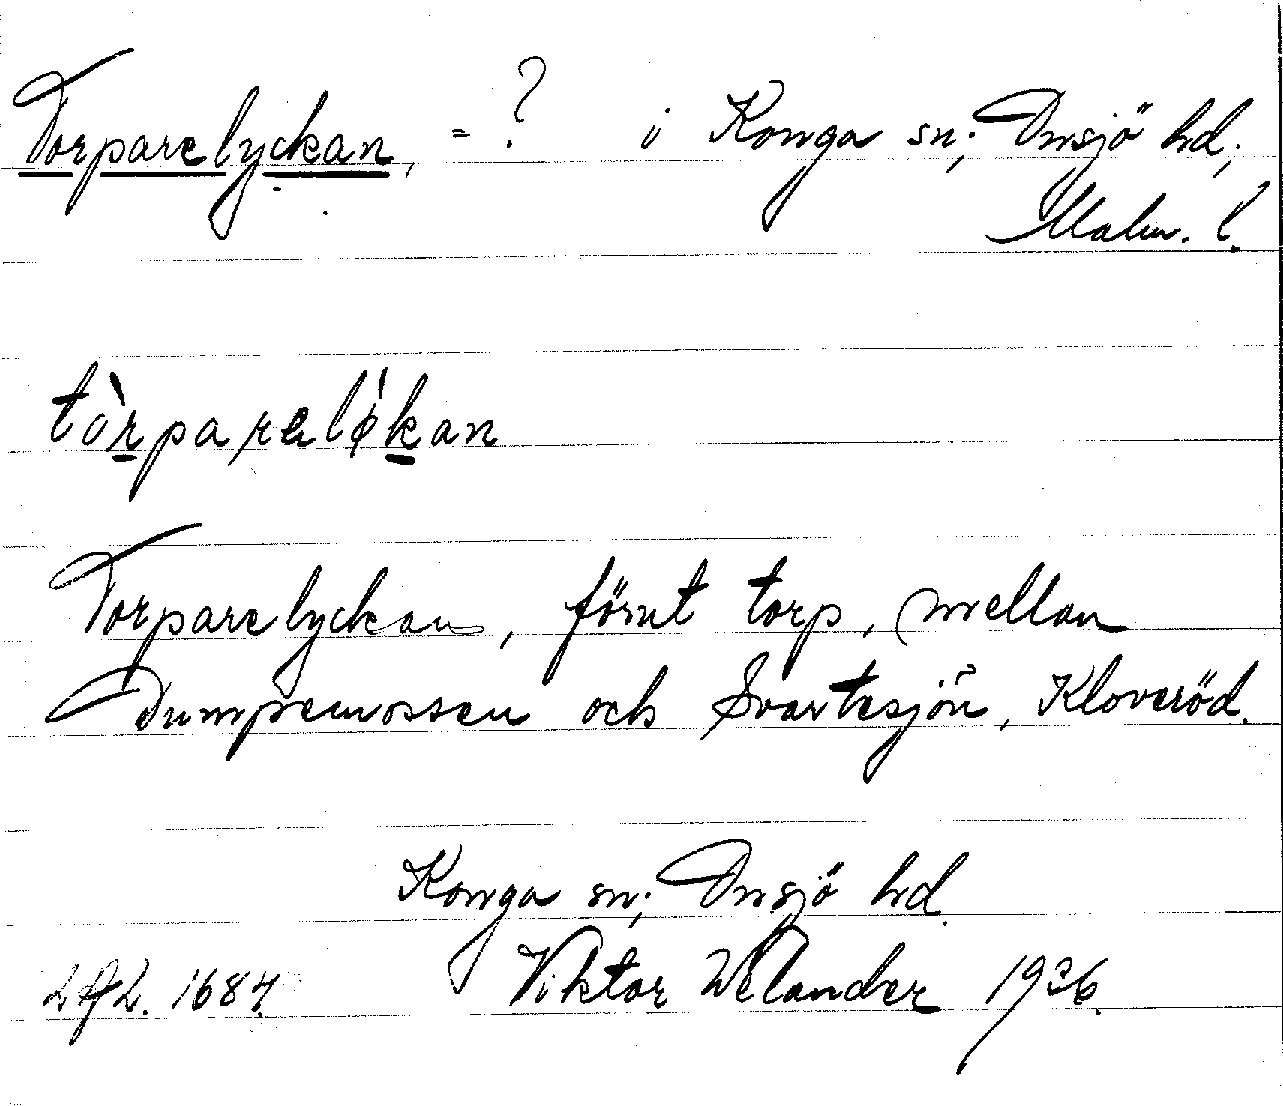 Torparelyckan, = ? i Konga sn; Onsjö hd,
Malm. l.
tòrpareløkan
Torparelyckan, förut torp, mellan
Dumpemossen och Svartesjön, Kloveröd.
Konga sn; Onsjö hd.
1684. Viktor Welander 1936.